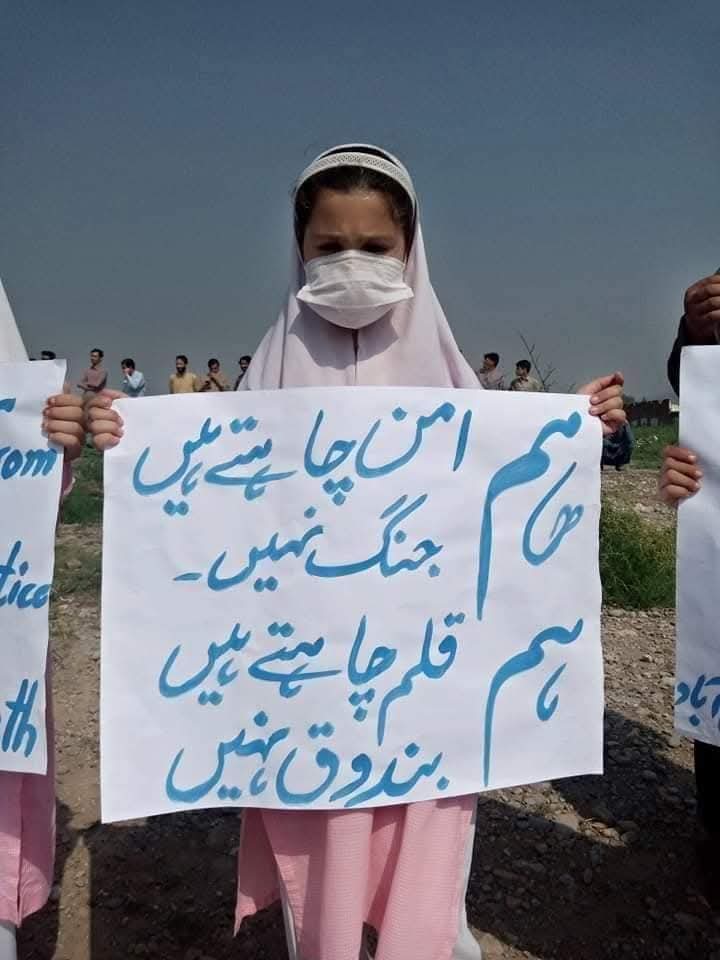 ہم امن چاہتے ہیں
جنگ نہیں۔
ہم قلم چاہتے ہیں
بندوق نہیں
om
tice
th
آباد